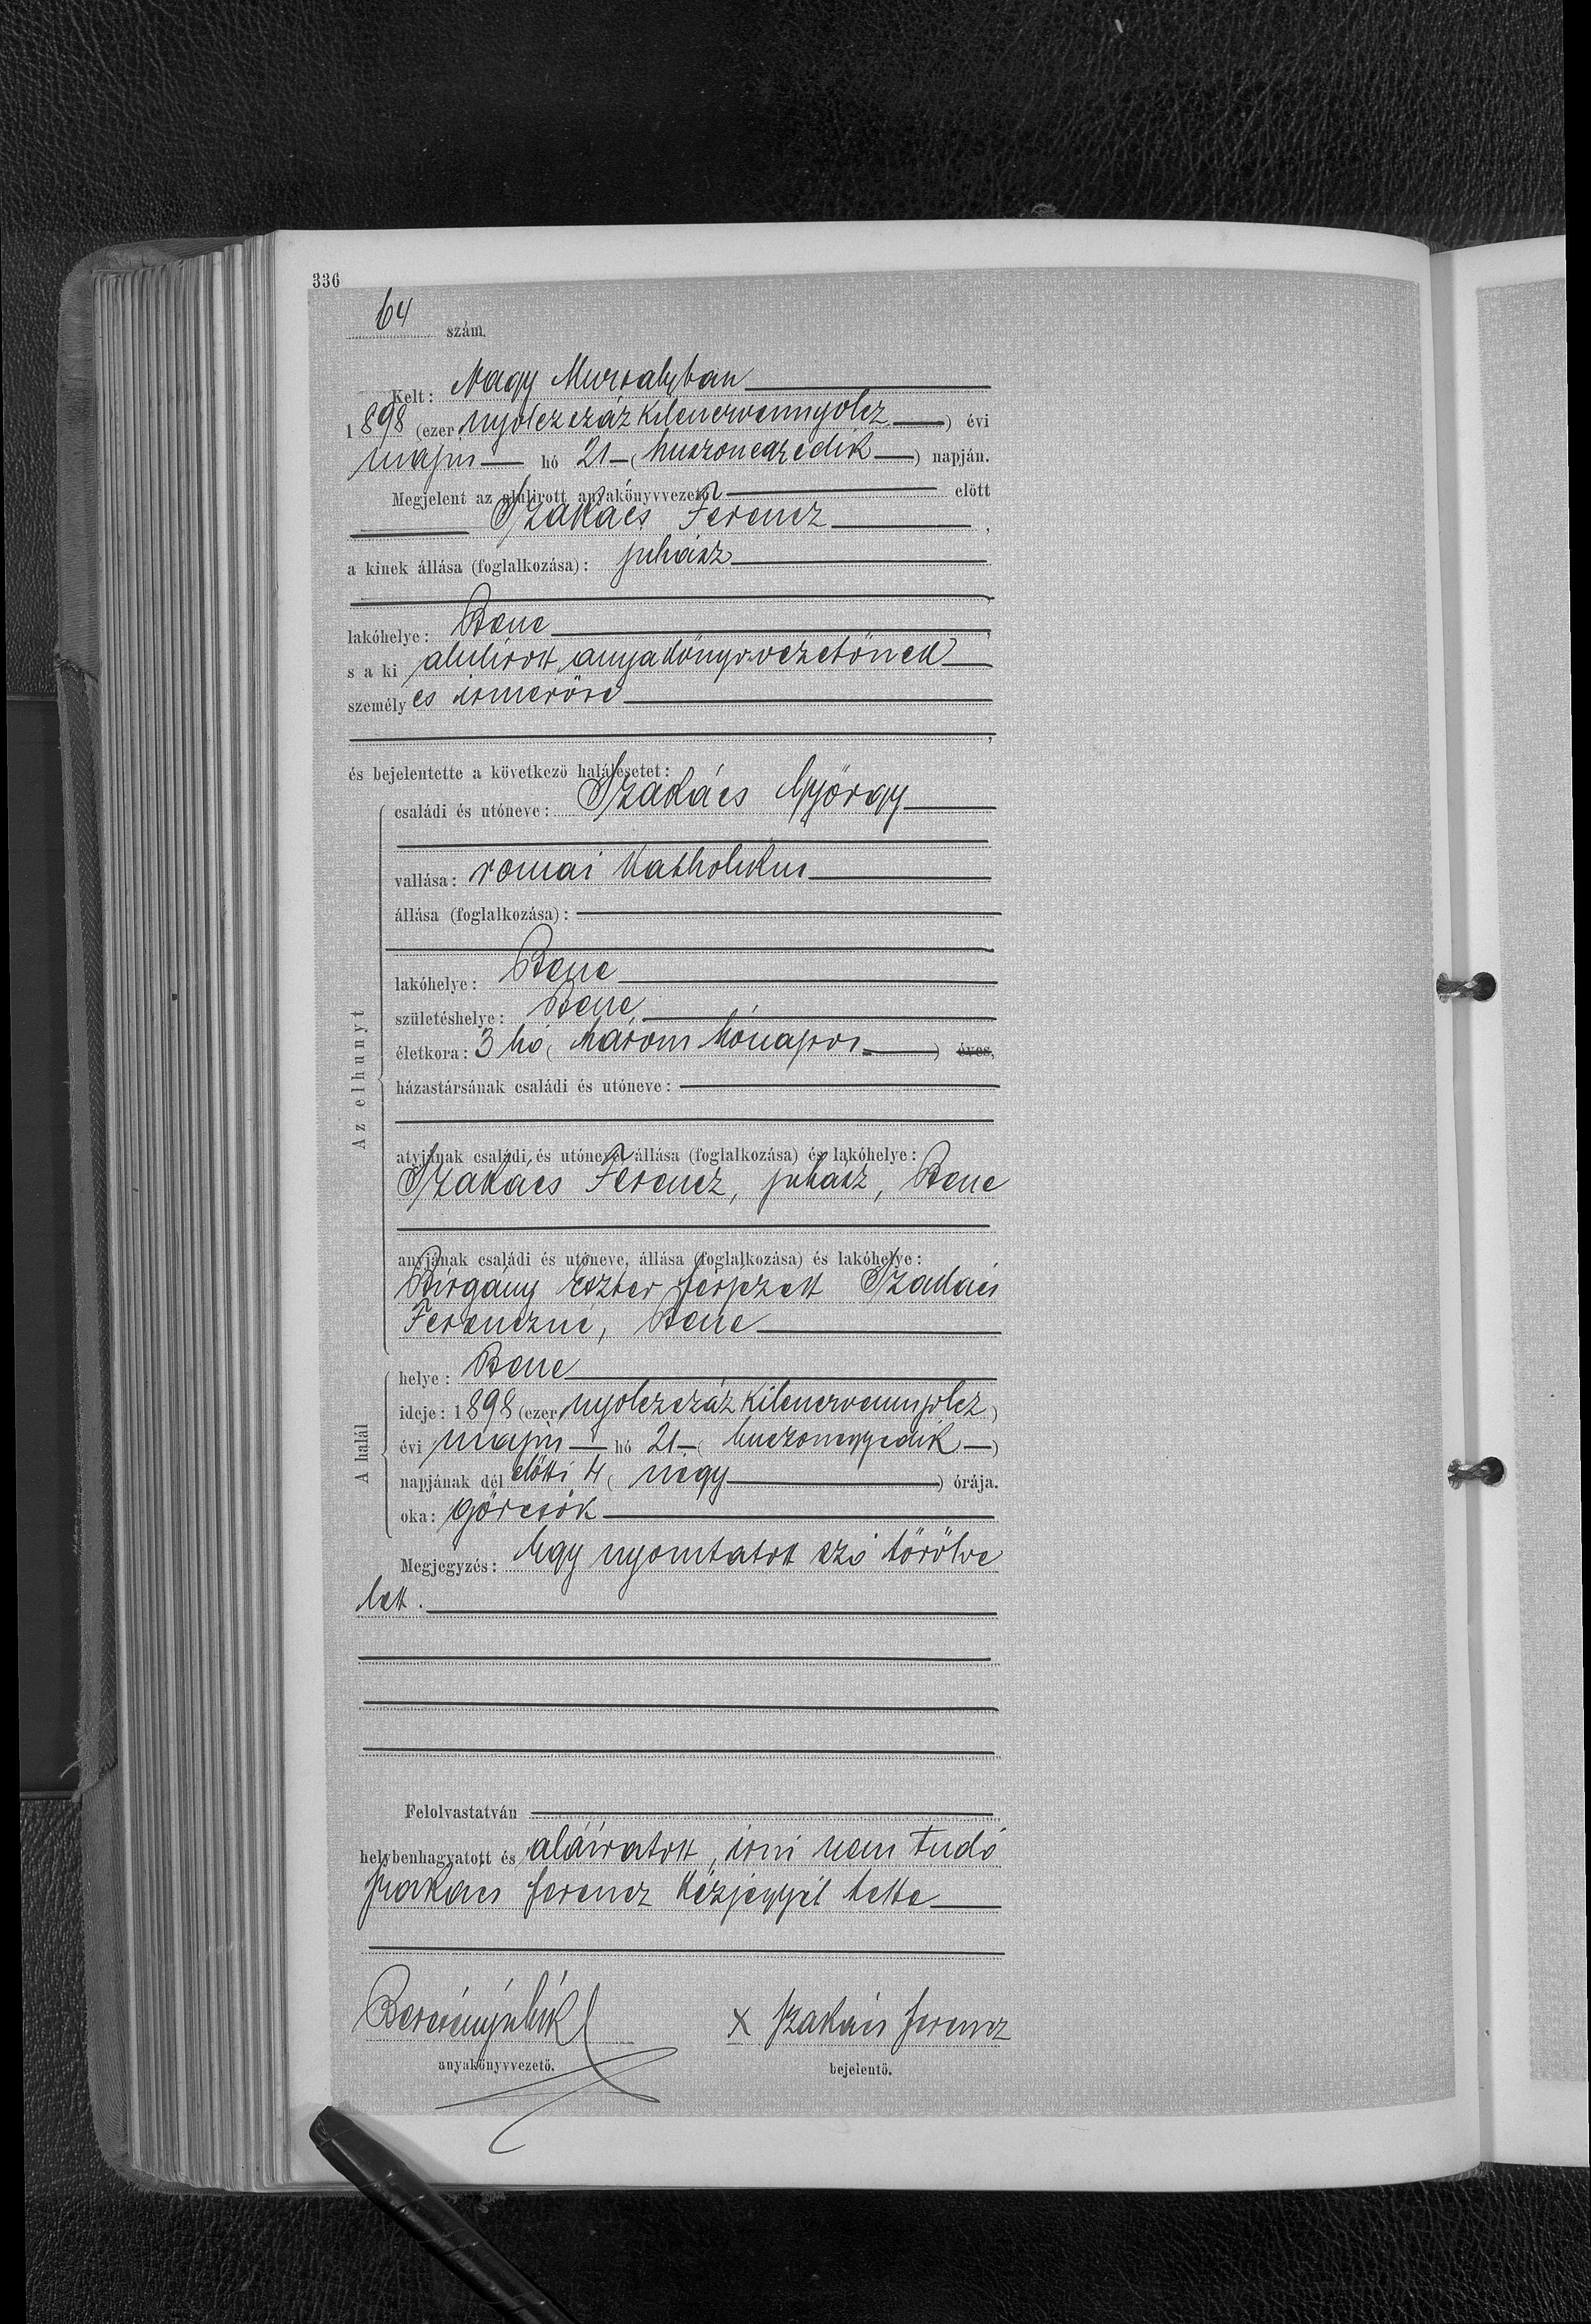 336
64 szám.
Kelt: Nagy Muzsalyban
1898 (ezer nyolczszáz kilenczvennyolcz) évi
május hó 21 (huszonegyedik) napján.
Megjelent az alulirott anyakönyvvezető előtt
Szakács Ferencz,
a kinek állása (foglalkozása): juhász
lakóhelye: Bene
s a ki alulirott anyakönyvvezetőnek
személyes ismerőse
és bejelentette a következő halálesetet:
Az elhunyt
családi és utóneve: Szakács György
vallása: romai katholikus
állása (foglalkozása):
lakóhelye: Bene
születéshelye: Bene
életkora: 3 hó (három hónapos) éves,
házastársának családi és utóneve:
atyjának családi és utóneve, állása (foglalkozása) és lakóhelye:
Szakács Ferencz, juhász, Bene
anyjának családi és utóneve, állása (foglalkozása) és lakóhelye:
Birgány Eszter férjezett Szakács
Ferenczné, Bene
A halál
helye: Bene
ideje: 1898 (ezer nyolczszáz kilenczvennyolcz)
évi május hó 21 (huszonegyedik)
napjának dél előtti 4 (négy) órája.
oka: görcsök
Megjegyzés: Egy nyomtatott szó törölve
lett.
Felolvastatván
helybenhagyatott és aláíratott, irni nem tudó
Szakács Ferencz kézjegyét tette
x Szakács Ferencz
anyakönyvvezető. bejelentő.